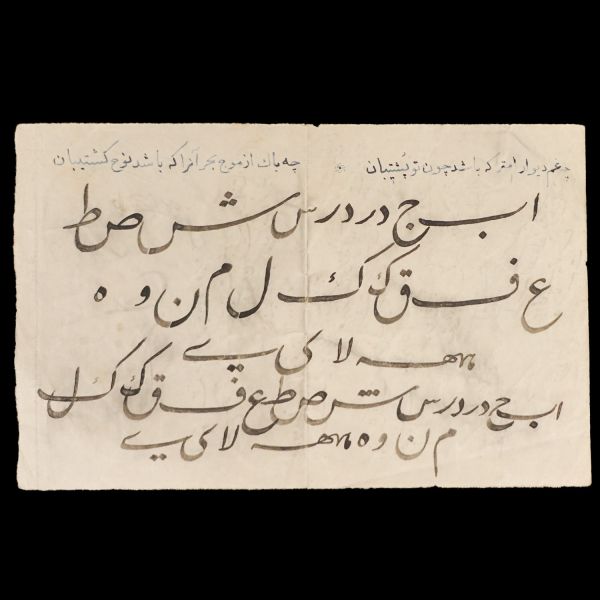 چه غم دیوار امت را که باشد چون تو پُشتیبان * چه باک از موج بحر آنرا که باشد نوح کشتیبان
ا ب ج د ر د ر س ش ص ط
ع ف ق ک ک ل م ن و ه
مهه لا ی ے
ا ب ج د ر د ر س ش ص ط ع ف ق ک ک ل
م ن و ه مهه لا ی ے